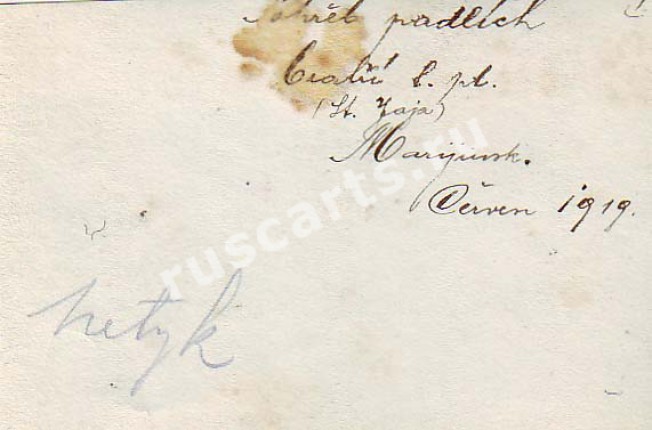 Pohřeb padlích
bratří 2. pl.
(St. Zaja)
Marijinsk.
Červen 1919.
ruscarts.ru